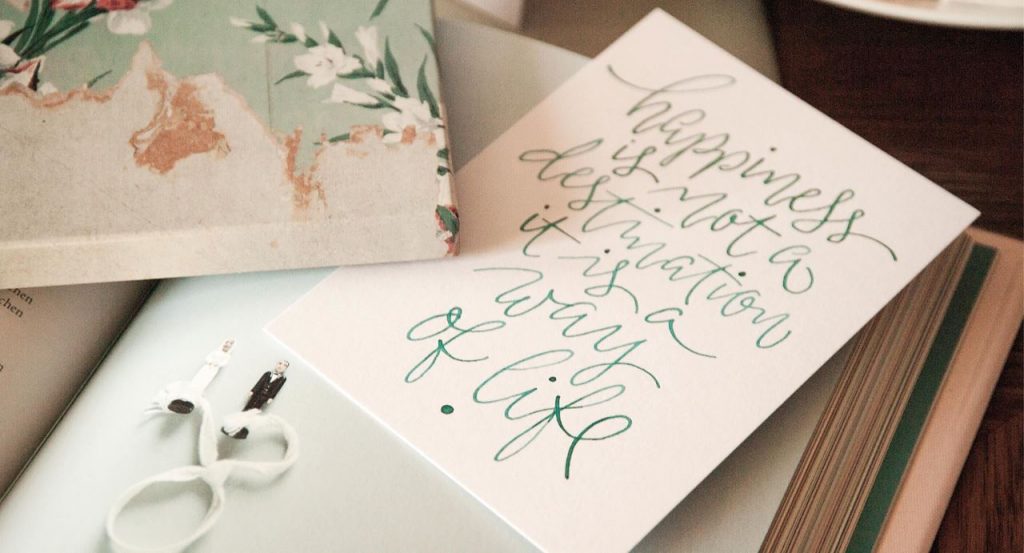 happiness
is not a
destination
it is a
way
of life
.
nen
chen